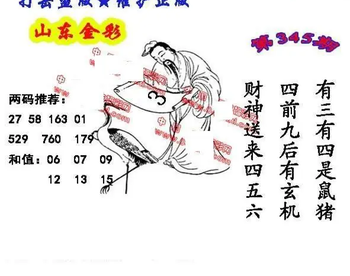 打击盗版责维护正版
山东金彩
第345期
两码推荐：
27 58 163 01
529 760 179
和值： 06 07 09
12 13 15
3
有三有四是鼠猪
四前九后有玄机
财神送来四五六